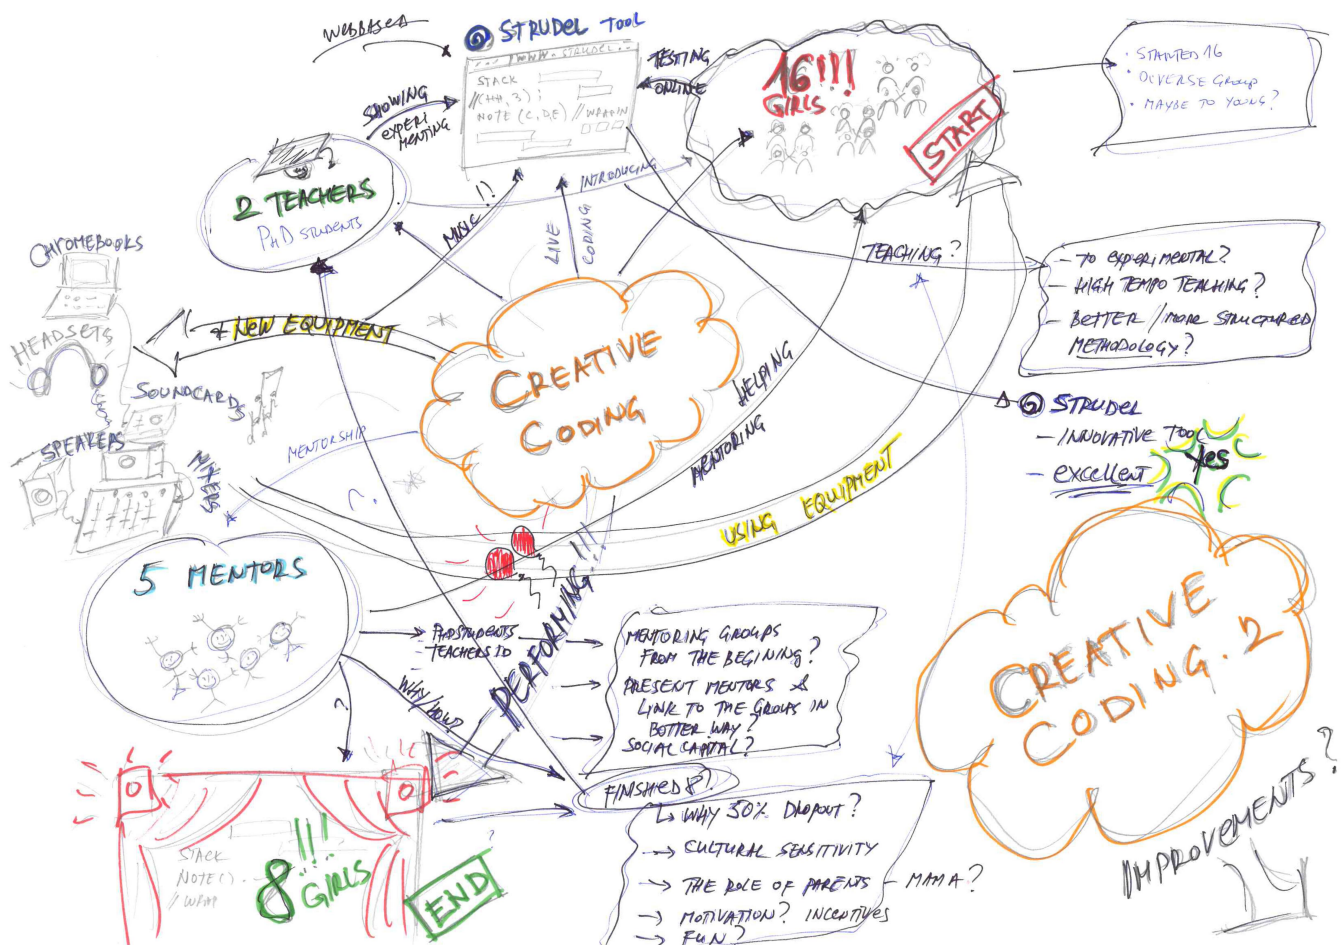 WEBBASED
STRUDEL TOOL
WWW.STRUDEL
STACK
NOTE (C, D, E) // WRAP IN
SHOWING
EXPERI
MENTING
TESTING
ONLINE
16!!!
GIRLS
START
• STARTED 16
• DIVERSE GROUP
• MAYBE TO YOUNG?
2 TEACHERS
PHD STUDENTS
MUSIC!!
LIVE
CODING
INTRODUCING
TEACHING?
- TO EXPERIMENTAL?
- HIGH TEMPO TEACHING?
- BETTER / MORE STRUCTURED
METHODOLOGY?
CHROMEBOOKS
HEADSETS
SOUNDCARDS
SPEAKERS
MIXERS
+ NEW EQUIPMENT
CREATIVE
CODING
HELPING
MENTORING
USING EQUIPMENT
STRUDEL
- INNOVATIVE TOOL
- EXCELLENT
YES
MENTORSHIP
?
5 MENTORS
PHD STUDENTS
TEACHERS ID
WHY/HOW?
?
PERFORMING!!!
MENTORING GROUPS
FROM THE BEGINNING?
PRESENT MENTORS &
LINK TO THE GROUPS IN
BETTER WAY?
SOCIAL CAPITAL?
CREATIVE
CODING. 2
IMPROVEMENTS?
FINISHED 8?
WHY 50% DROPOUT?
CULTURAL SENSITIVITY
THE ROLE OF PARENTS - MAMA?
MOTIVATION? INCENTIVES
FUN?
STACK
NOTE().
// WRAP
8!!!
GIRLS
END